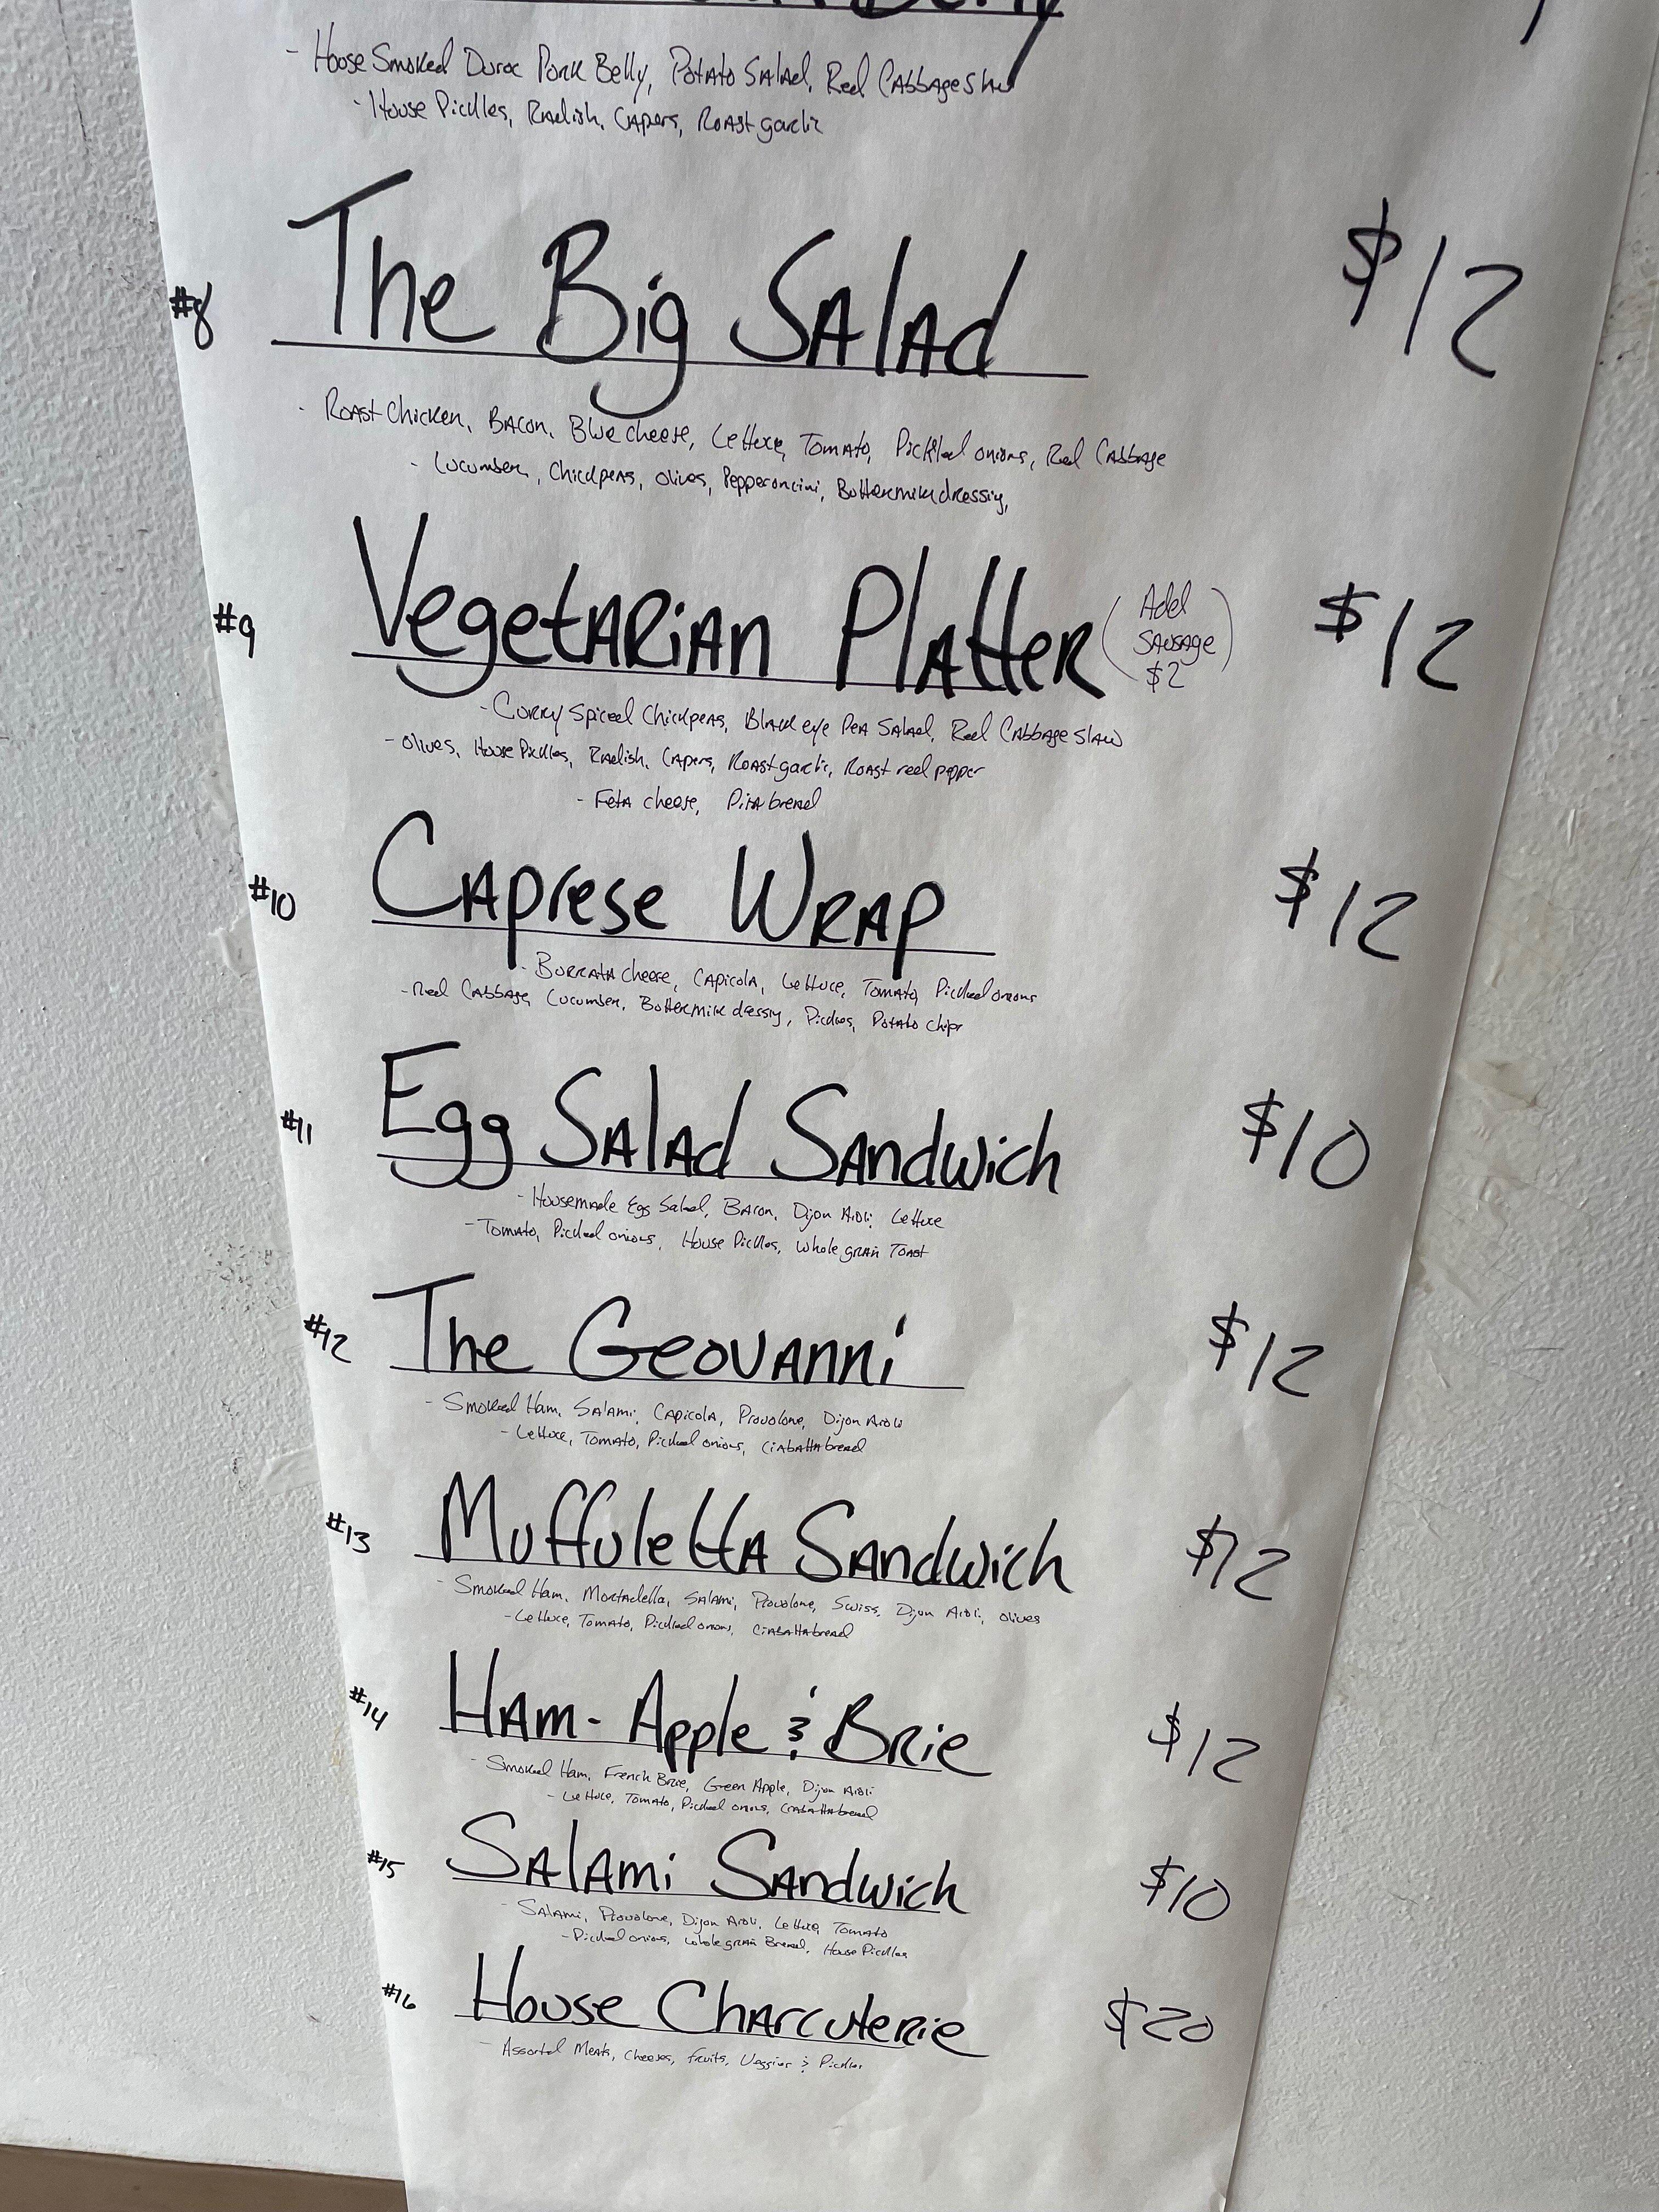 Belly
- House Smoked Duroc Pork Belly, Potato Salad, Red Cabbage slaw
- House Pickles, Radish, Capers, Roast garlic
#8 The Big Salad $12
- Roast Chicken, Bacon, Blue cheese, Lettuce, Tomato, Pickled onions, Red Cabbage
- Cucumber, Chickpeas, Olives, Pepperoncini, Buttermilk dressing,
#9 Vegetarian Platter (Add Sausage $2) $12
- Curry Spiced Chickpeas, Black eye Pea Salad, Red Cabbage Slaw
- Olives, House Pickles, Radish, Capers, Roast garlic, Roast red pepper
- Feta cheese, Pita bread
#10 Caprese Wrap $12
- Burrata cheese, Capicola, Lettuce, Tomato, Pickled onions
- Red Cabbage, Cucumber, Buttermilk dressing, Pickles, Potato chips
#11 Egg Salad Sandwich $10
- Housemade Egg Salad, Bacon, Dijon Aioli, Lettuce
- Tomato, Pickled onions, House Pickles, Whole grain Toast
#12 The Geovanni $12
- Smoked Ham, Salami, Capicola, Provolone, Dijon Aioli
- Lettuce, Tomato, Pickled onions, Ciabatta bread
#13 Muffuletta Sandwich $12
- Smoked Ham, Mortadella, Salami, Provolone, Swiss, Dijon Aioli, olives
- Lettuce, Tomato, Pickled onions, Ciabatta bread
#14 Ham-Apple & Brie $12
- Smoked Ham, French Brie, Green Apple, Dijon Aioli
- Lettuce, Tomato, Pickled onions, Ciabatta bread
#15 Salami Sandwich $10
- Salami, Provolone, Dijon Aioli, Lettuce, Tomato
- Pickled onions, whole grain Bread, House Pickles
#16 House Charcuterie $20
- Assorted Meats, Cheeses, fruits, Veggies & Pickles